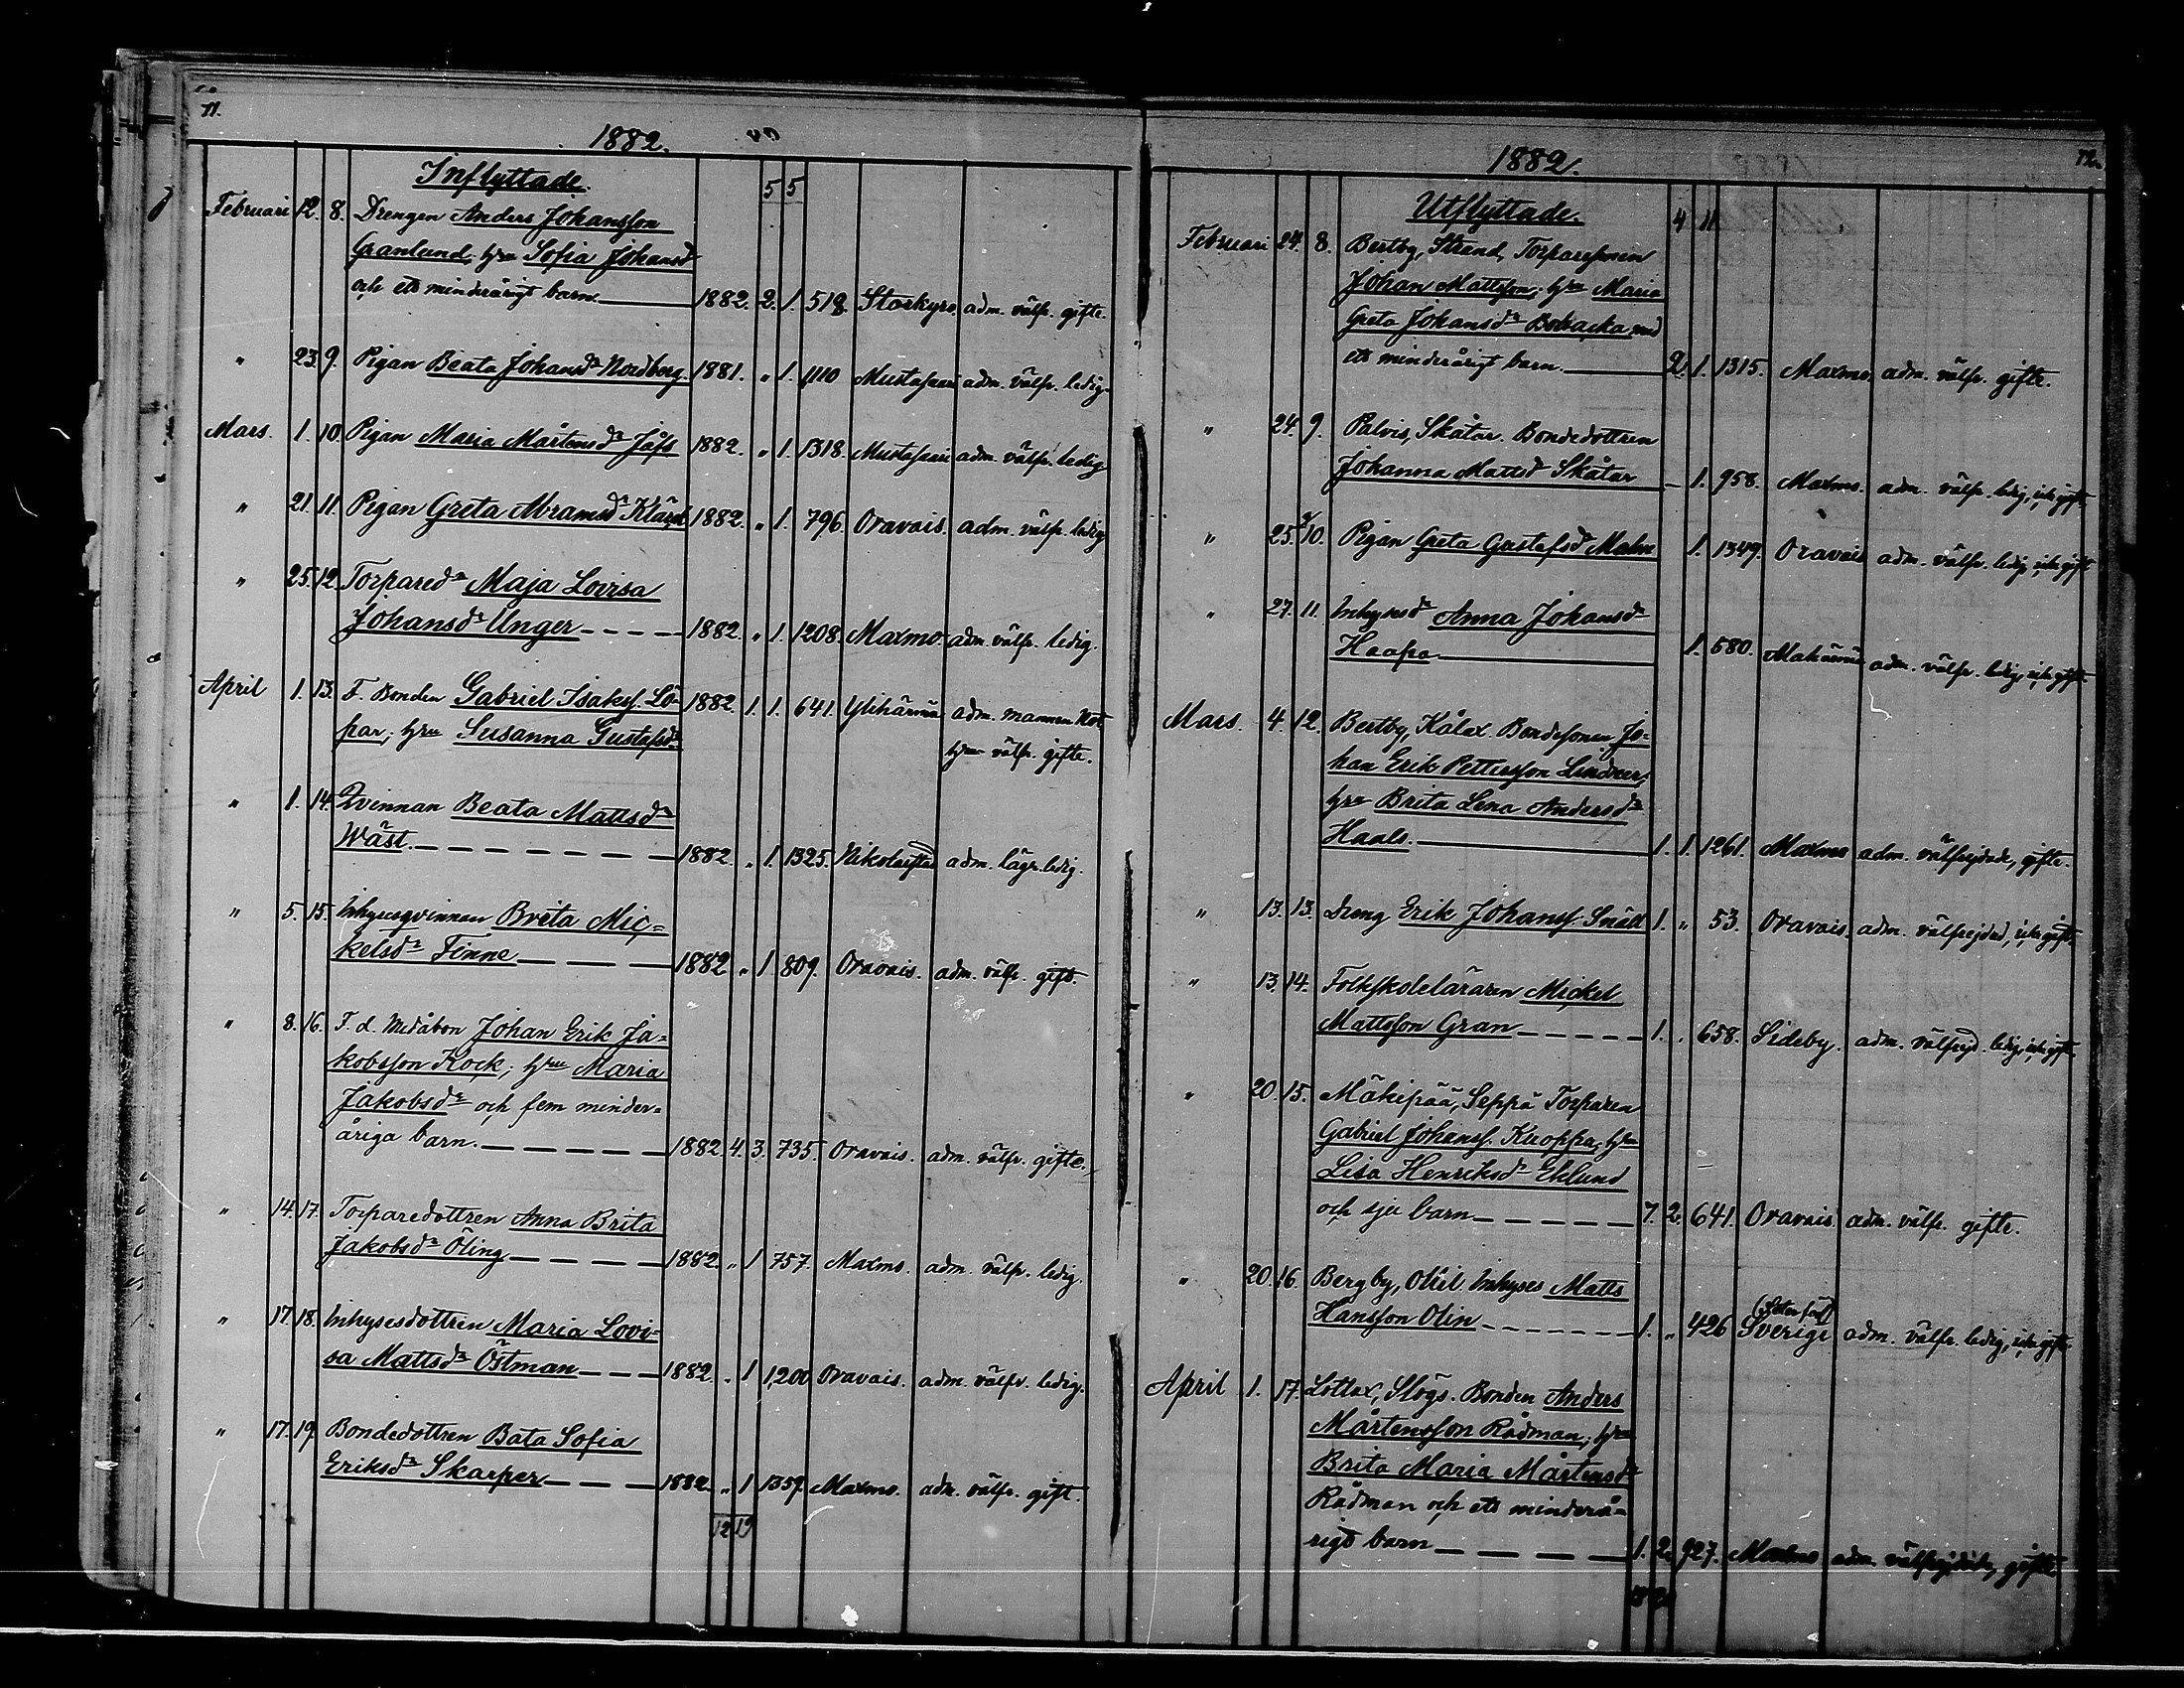 11.
1882.
Inflyttade.
5 5
Februari 12. 8. Drengen Anders Johansson
Granlund, hru Sofia Johansdr
och ett minderårigt barn 1882. 2. 1. 518. Storkyro adm. välfr. gifte.
" 23. 9. Pigan Beata Johansdr Nordberg. 1881. " 1. 1110 Mustasaari adm. välfr. ledig.
Mars. 1. 10. Pigan Maria Mårtensdr Jåfs 1882. " 1. 1318. Mustasaari adm. välfr. ledig
" 21. 11. Pigan Greta Abramsdr 1882. " 1. 796. Oravais. adm. välfr. ledig
" 25. 12. Torparedr Maja Lovisa
Johansdr Unger 1882. " 1. 1208. Maxmo. adm. välfr. ledig.
April 1. 13. F. Bonden Gabriel Isaks. Lö-
par; hru Susanna Gustafsdr 1882. 1. 1. 641. Ylihärmä adm. mannen
hru välfr. gifte.
" 1. 14. Qvinnan Beata Mattsdr
Wäst. 1882. " 1. 1325. Nikolaistad adm. lägr. ledig.
" 5. 15. Inhysesqvinnan Brita Mic-
kelsdr Finne 1882 " 1 809. Oravais. adm. välfr. gift.
" 8. 16. F. d. Måbon Johan Erik Ja-
kobsson Kock; hru Maria
Jakobsdr och fem minder-
åriga barn. 1882. 4. 3. 735. Oravais. adm. välfr. gifte.
" 14. 17. Torparedottren Anna Brita
Jakobsdr Öling 1882. " 1 757. Maxmo. adm. välfr. ledig.
" 17. 18. Inhysesdottren Maria Lovi-
sa Mattsdr Östman 1882. " 1 1,200 Oravais. adm. välfr. ledig.
" 17. 19. Bondedottren Bata Sofia
Eriksdr Skarper 1882. " 1 1359. Maxmo. adm. välfr. gift.
12 19
12.
1882.
Utflyttade.
4 11
Februari 24. 8. Bertby, Strand, Torparesonen
Johan Mattsson; hru Maria
Greta Johansdr med
ett minderårigt barn. 2. 1. 1315. Maxmo. adm. välfr. gifte.
" 24. 9. Palvis, Skåtar. Bondedottren
Johanna Mattsdr Skåtar 1. 958. Maxmo. adm. välfr. ledig, icke gift
" 25. 10. Pigan Greta Gustafsdr Malm 1. 1349. Oravais adm. välfr. ledig icke gift
" 27. 11. Inhysesdr Anna Johansdr
Haapa 1. 580. adm. välfr. ledig, icke gift.
Mars. 4. 12. Bertby, Kålax. Bondesonen Jo-
han Erik Pettersson
hru Brita Lena Andersdr
Haals. 1. 1. 1261. Maxmo adm. välfrejdade, gifte.
" 13. 13. Dreng Erik Johans. Snäll 1. " 53. Oravais. adm. välfrejdad, icke gift.
" 13. 14. Folkskoleläraren Mickel
Mattsson Gran 1. " 658. Sideby. adm. välfrejd. ledig, icke gift.
" 20. 15. Mäkipää, Seppä Torparen
Gabriel Johans. Knoppa, hru
Lisa Henriksdr Eklund
och sju barn 7. 2. 641. Oravais adm. välfr. gifte.
" 20. 16. Bergby, Inhyses Matts
Hansson Olin 1. " 426 Sverige adm. välfr. ledig, icke gift.
April 1. 17. Lottax, Slögs. Bonden Anders
Mårtensson Rådman; hru
Brita Maria Mårtensdr
Rådman och ett minderå-
rigt barn 1. 2. 927. Maxmo adm. välfrejdade, gifte